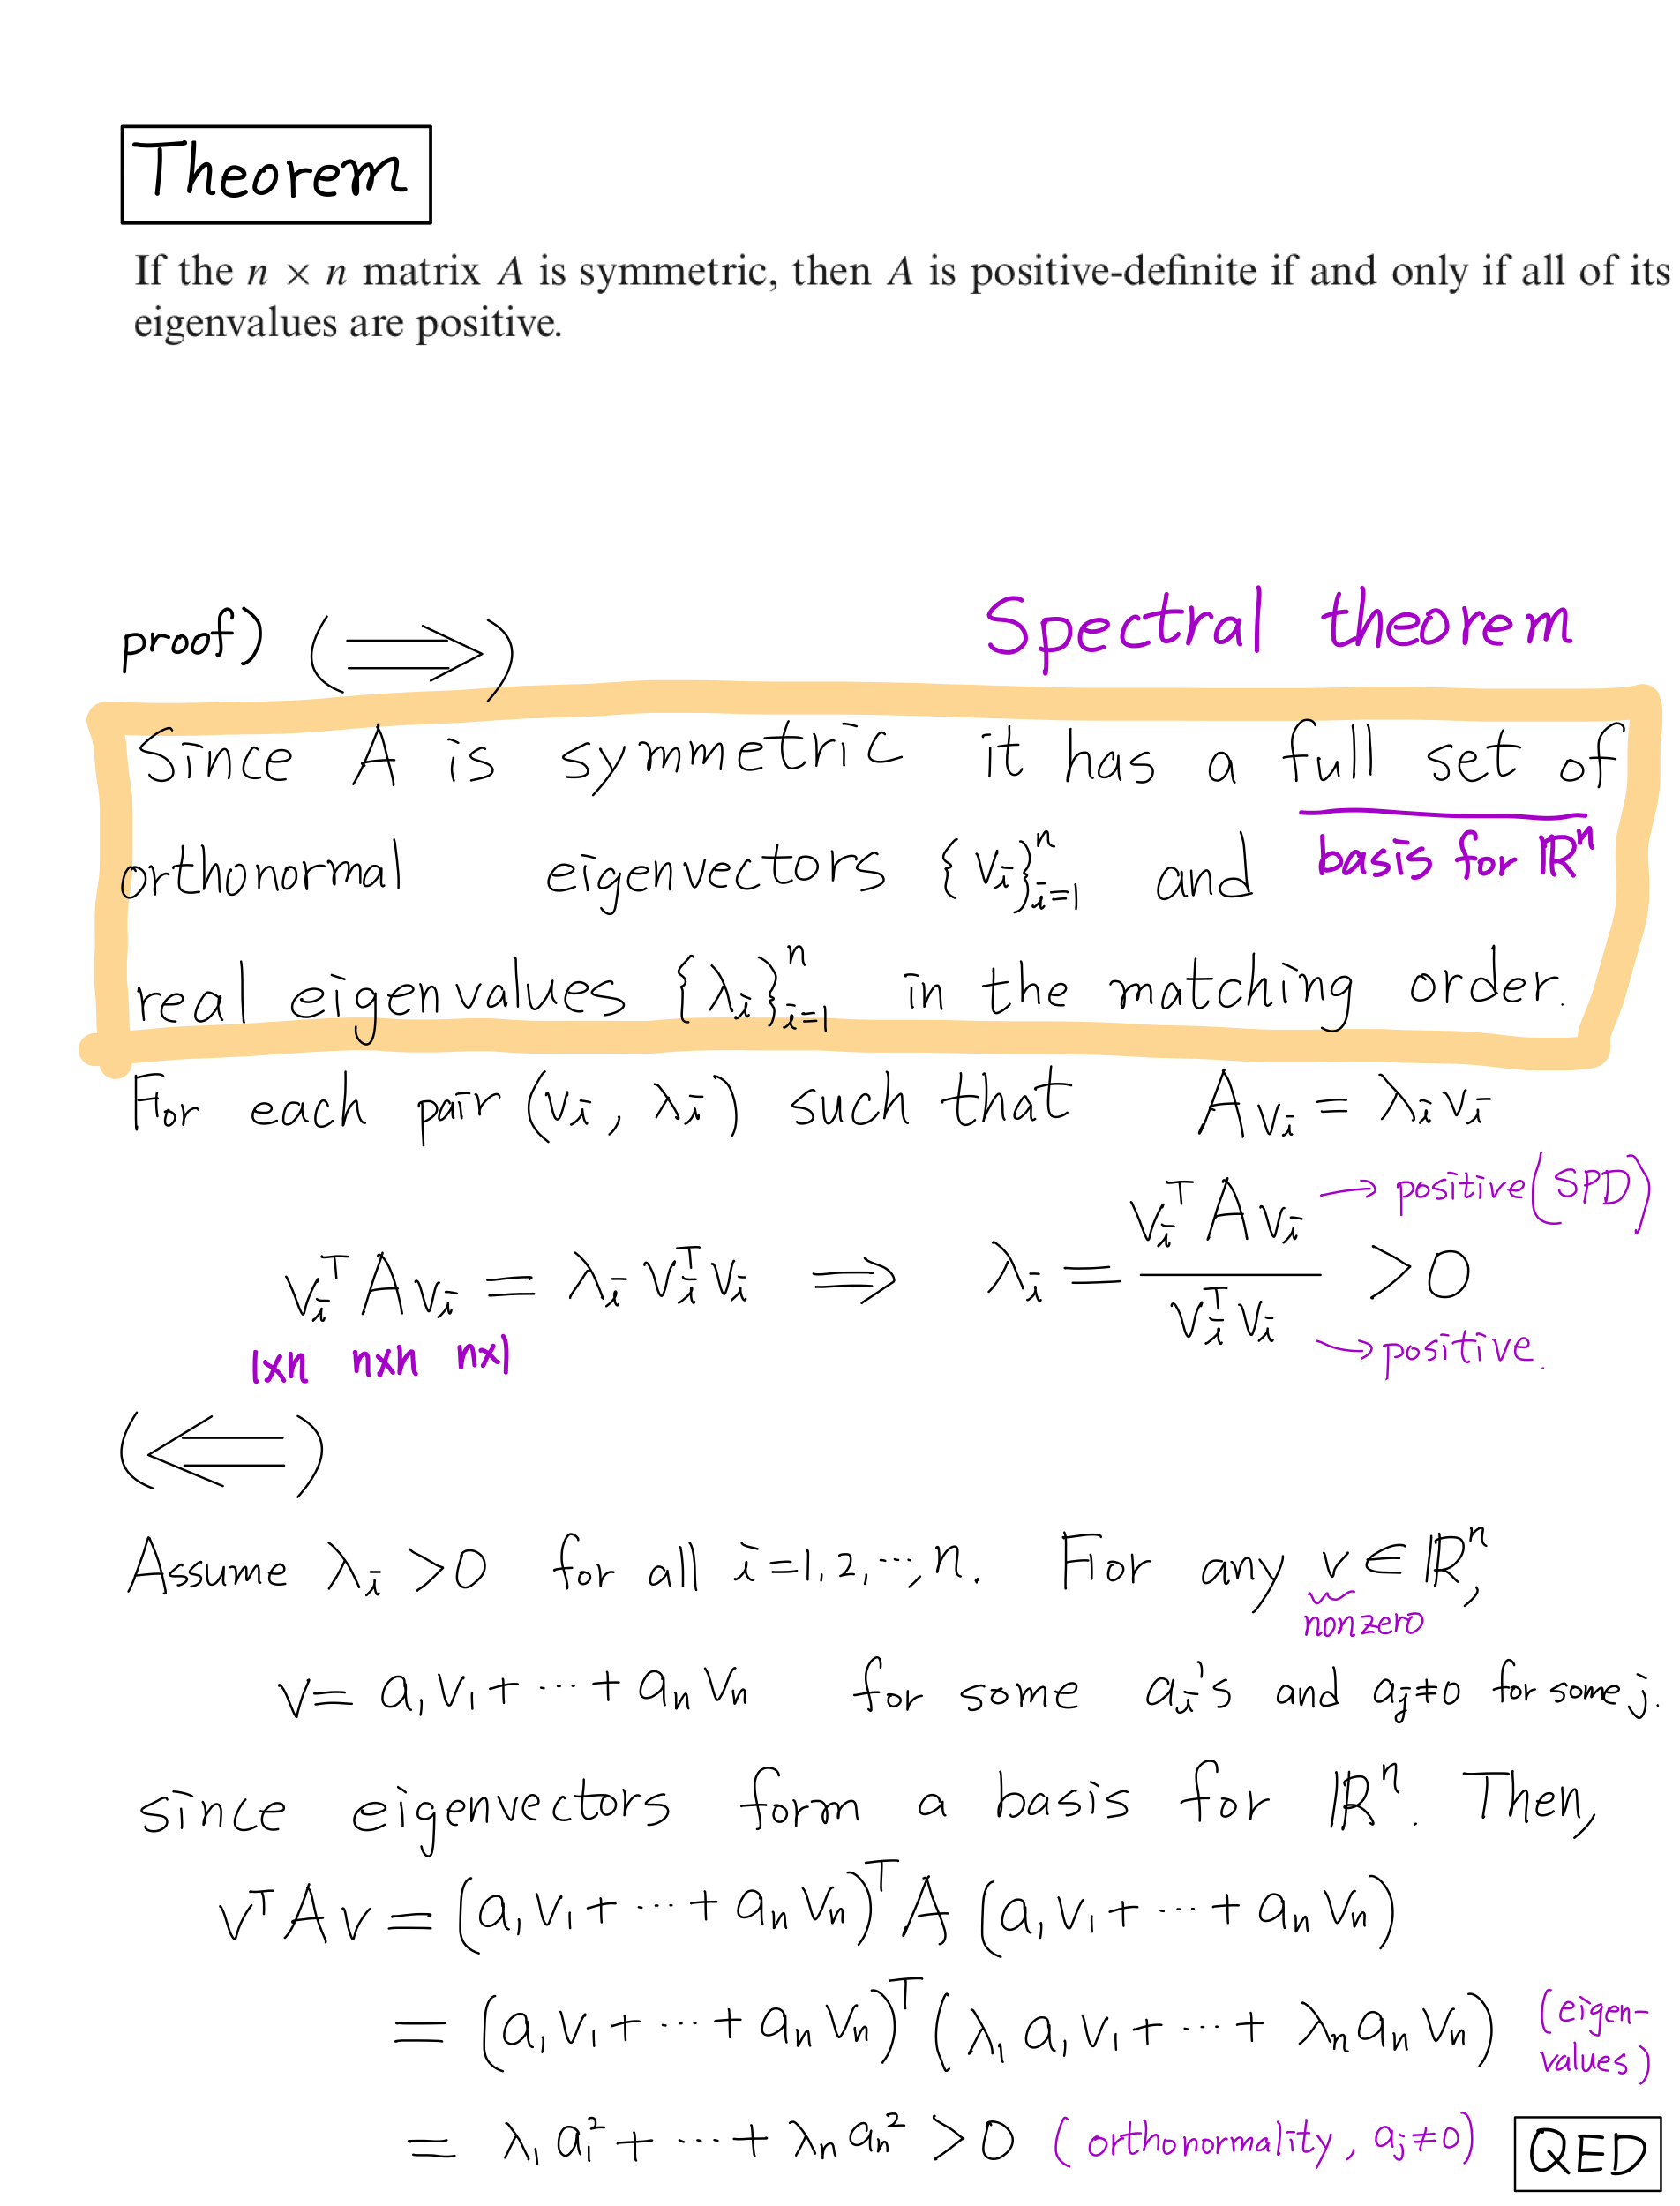 Theorem
If the n × n matrix A is symmetric, then A is positive-definite if and only if all of its
eigenvalues are positive.
proof) (⟹) Spectral theorem
Since A is symmetric it has a full set of
basis for ℝⁿ
orthonormal eigenvectors {vᵢ}ⁿᵢ₌₁ and
real eigenvalues {λᵢ}ⁿᵢ₌₁ in the matching order.
For each pair (vᵢ, λᵢ) such that Avᵢ = λᵢvᵢ
vᵢᵀAvᵢ = λᵢvᵢᵀvᵢ ⟹ λᵢ = vᵢᵀAvᵢ / vᵢᵀvᵢ > 0
→ positive (SPD)
→ positive.
1×n n×n n×1
(⟸)
Assume λᵢ > 0 for all i = 1, 2, ⋯, n. For any v ∈ ℝⁿ,
nonzero
v = a₁v₁ + ⋯ + aₙvₙ for some aᵢ's and aⱼ ≠ 0 for some j.
since eigenvectors form a basis for ℝⁿ. Then,
vᵀAv = (a₁v₁ + ⋯ + aₙvₙ)ᵀ A (a₁v₁ + ⋯ + aₙvₙ)
= (a₁v₁ + ⋯ + aₙvₙ)ᵀ (λ₁a₁v₁ + ⋯ + λₙaₙvₙ) (eigen-
values)
= λ₁a₁² + ⋯ + λₙaₙ² > 0 (orthonormality, aⱼ ≠ 0) QED